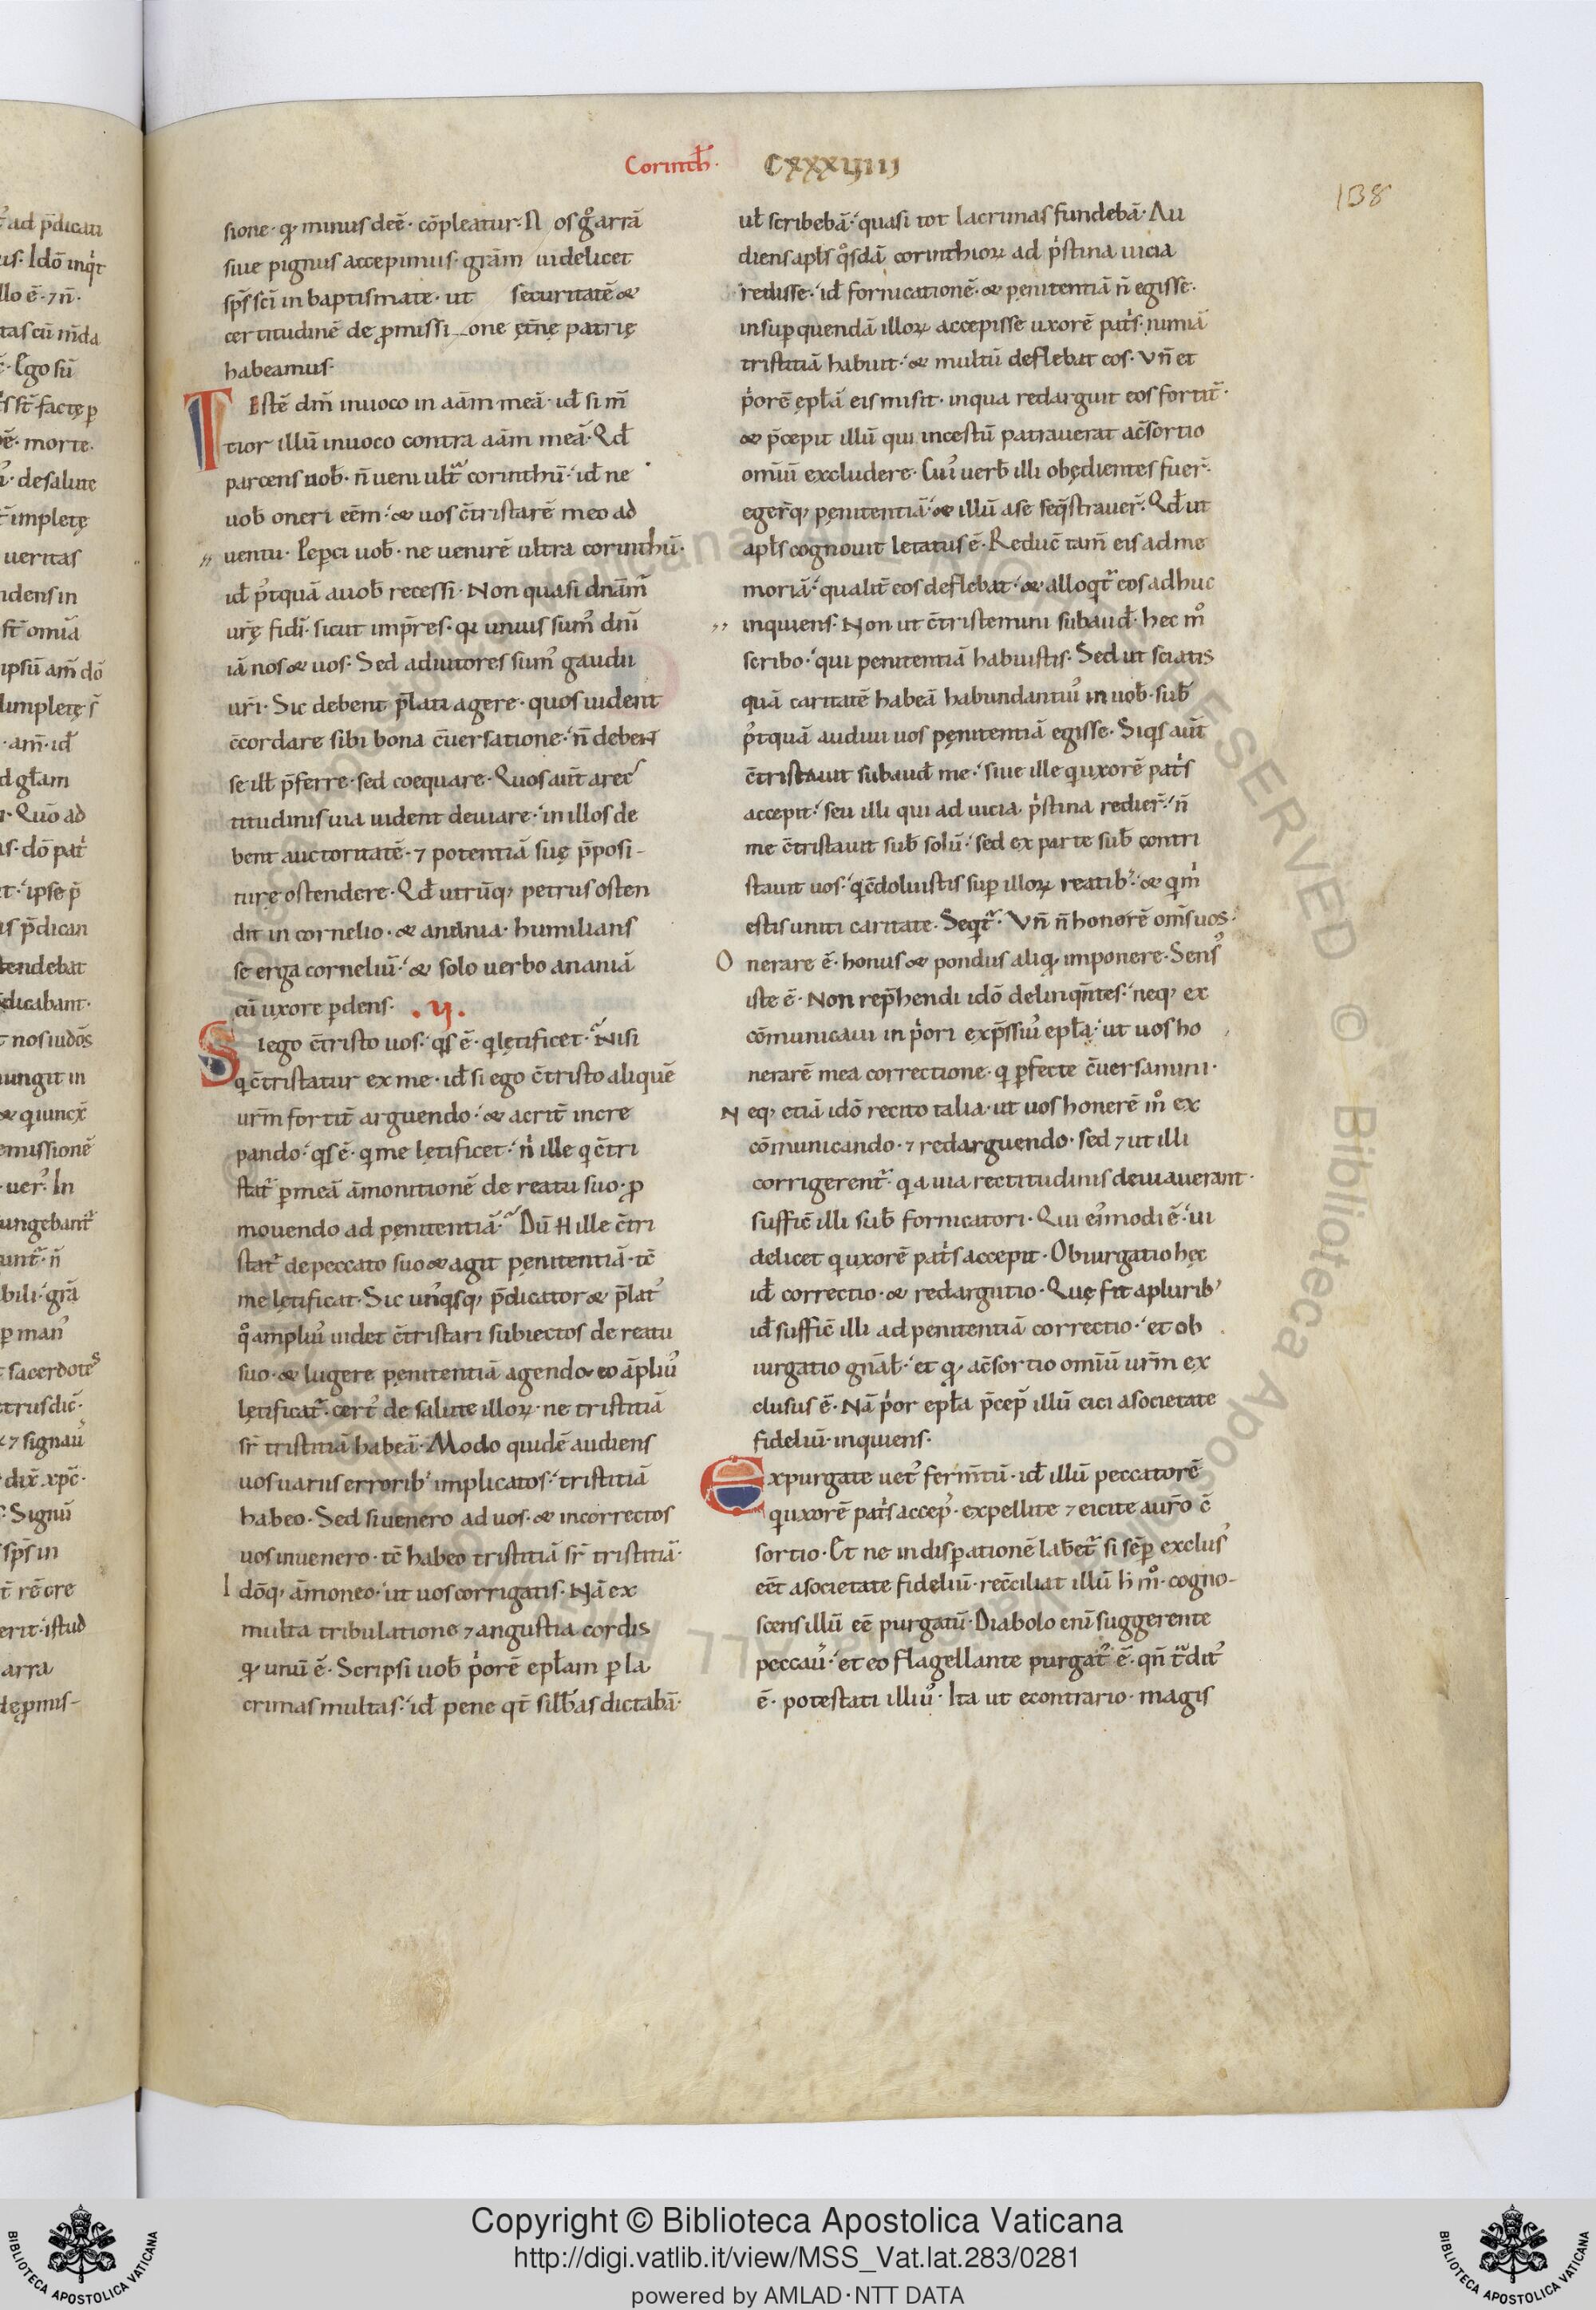 Corinth̄·
CXXXVIIII
138
sione· qͥ minus deē· cōpleatur· N osgͦ arrā
siue pignus accepimus· grām uidelicet
sp̄s sc̄i in baptismate· ut securitatē &
certitudinē de ꝓmissi one ęt̄nę patrię
habeamus·
Testē dm̄ inuoco in aām meā· id̄ si m̄
tior illū inuoco contra aām meā· Qd̄
parcens uob̄· n̄ ueni ult̄ᵃ corinthū· id̄ ne
uob̄ oneri eēm· & uos c̄tristarē meo ad
uentu· Peperci uob̄· ne uenirē ultra corinthū·
id̄ p᾽tquā a uob̄ recessi· Non quasi dnām᾽
ur̄ę fidī· sicut imp̄res· qꝛ unius sum᾽ dnī
iā nos & uos· Sed adiutores sum᾽ gaudii
ur̄i· Sic debent p̄lati agere· quos uident
c̄cordare sibi bona c̄uersatione· n̄ debent
se ill̄ p̄ferre· sed coequare· Quos aut̄ a rec
titudinis uia uident deuiare· in illos de
bent auctoritatē· ⁊ potentiā suę p̄posi-
turę ostendere· Qd̄ utrūq; petrus osten
dit in cornelio· & anania· humilians
se erga corneliū· & solo uerbo ananiā
cū uxore ꝑdens· .ij.
Si ego c̄tristo uos· q̄s ē· q lętificet· Nisi
q c̄tristatur ex me· id̄ si ego c̄tristo aliquē
ur̄m fortit̄ arguendo· & acrit̄ incre
pando· q̄s ē· q me lętificet· nͥ ille q c̄tri
stat᾽ ꝑ meā āmonitionē de reatu suo· ꝓ
mouendo ad pęnitentiā· Dū H ille c̄tri
stat᾽ de peccato suo & agit pęnitentiā· tc̄
me lętificat· Sic unq̄sq; p̄dicator & p̄lat᾽
qͦ ampliu᾽ uidet c̄tristari subiectos de reatu
suo· & lugere pęnitentiā agendo· eo āpliu᾽
lętificat᾽· cert᾽ de salute illoꝝ· ne tristitiā
sr̄ tristitiā habeā· Modo quidē audiens
uos uariis errorib᾽ implicatos· tristitiā
habeo· Sed si uenero ad uos· & incorrectos
uos inuenero· tc̄ habeo tristitiā sr̄ tristitiā·
Idōq; āmoneo· ut uos corrigatis· Nā ex
multa tribulatione ⁊ angustia cordis
qͥ unū ē· Scripsi uob̄ pͥorē epl̄am ꝑ la
crimas multas· id̄ pene qt̄ sill̄bas dictabā·
ul̄ scribebā· quasi tot lacrimas fundebā· Au
diens apl̄s qͦsdā corinthioꝝ ad pͥstina uicia
redisse· id̄ fornicationē· & penitentiā n̄ egisse·
insuꝑ quendā illoꝝ accepisse uxorē patͥs· nimiā
tristitiā habuit· & multū deflebat eos· Vn̄ et
pͥorē ępl̄ā eis misit· in qua redarguit eos fortit̄·
& p̄cepit illū qui incestū patrauerat a c̄sortio
omīū excludere· Cui᾽ uerb̄ illi obędientes fuer̄·
eger̄q; pęnitentiā· & illū a se seq̄strauer̄· Qd̄ ut
apl̄s cognouit letatus ē· Reduc̄ tam̄ eis ad me
moriā· qualit̄ eos deflebat· & alloq̄t᾽ eos adhuc
inquiens· Non ut c̄tristemini subaud̄· hec mͦ
scribo· qui penitentiā habuistis· Sed ut sciatis
quā caritatē habeā habundantiu᾽ in uob̄· sub̄
p᾽tquā audiui uos pęnitentiā egisse· Siq̄s aut̄
c̄tristauit subaud̄ me· siue ille q uxorē patͥs
accepit· seu illi qui ad uicia pͥstina redier̄· n̄
me c̄tristauit sub̄ solū· sed ex parte sub̄ contri
stauit uos· q c̄doluistis suꝑ illoꝝ reatib᾽· & qm̄
estis uniti caritate· Seqt᾽· Vn̄ n̄ honorē om̄s uos·
Onerare ē· honus & pondus aliqͥ imponere· Sens᾽
iste ē· Non rep̄hendi idō delinq̄ntes· neq; ex
cōmunicaui in pͥori exp̄ssiu᾽ epl̄a· ut uos ho
nerarē mea correctione· q ꝑfecte c̄uersamini·
Neq; etiā idō recito talia· ut uos honerē mͦ ex
cōmunicando· ⁊ redarguendo· sed ⁊ ut illi
corrigerent᾽· q a uia rectitudinis deuiauerant·
suffic̄ illi sub̄ fornicatori· Qui ei᾽modi ē· ui
delicet q uxorē patͥs accepit· Obiurgatio hęc
id̄ correctio· & redargutio· Quę fit a plurib᾽
id̄ suffic̄ illi ad penitentiā correctio· et ob
iurgatio gn̄al̄· et qͥ a c̄sortio omīū ur̄m ex
clusus ē· Nā pͥor epl̄a p̄cep̄ illū eici a societate
fideliū· inquiens·
Expurgate uet᾽ ferm̄tū· id̄ illū peccatorē
q uxorē patͥs accep᾽· expellite ⁊ eicite a ur̄o c̄
sortio· Et ne in disꝑationē labet᾽ si sēꝑ exclus᾽
eēt a societate fideliū· rec̄ciliat illū h̄ mͦ· cogno-
scens illū eē purgatū· Diabolo enī suggerente
peccau᾽· et eo flagellante purgat᾽ ē· qn̄ tᵃdit᾽
ē· potestati illiu᾽· Ita ut econtrario· magis
Copyright © Biblioteca Apostolica Vaticana
http://digi.vatlib.it/view/MSS_Vat.lat.283/0281
powered by AMLAD·NTT DATA
BIBLIOTECA APOSTOLICA VATICANA
BIBLIOTECA APOSTOLICA VATICANA